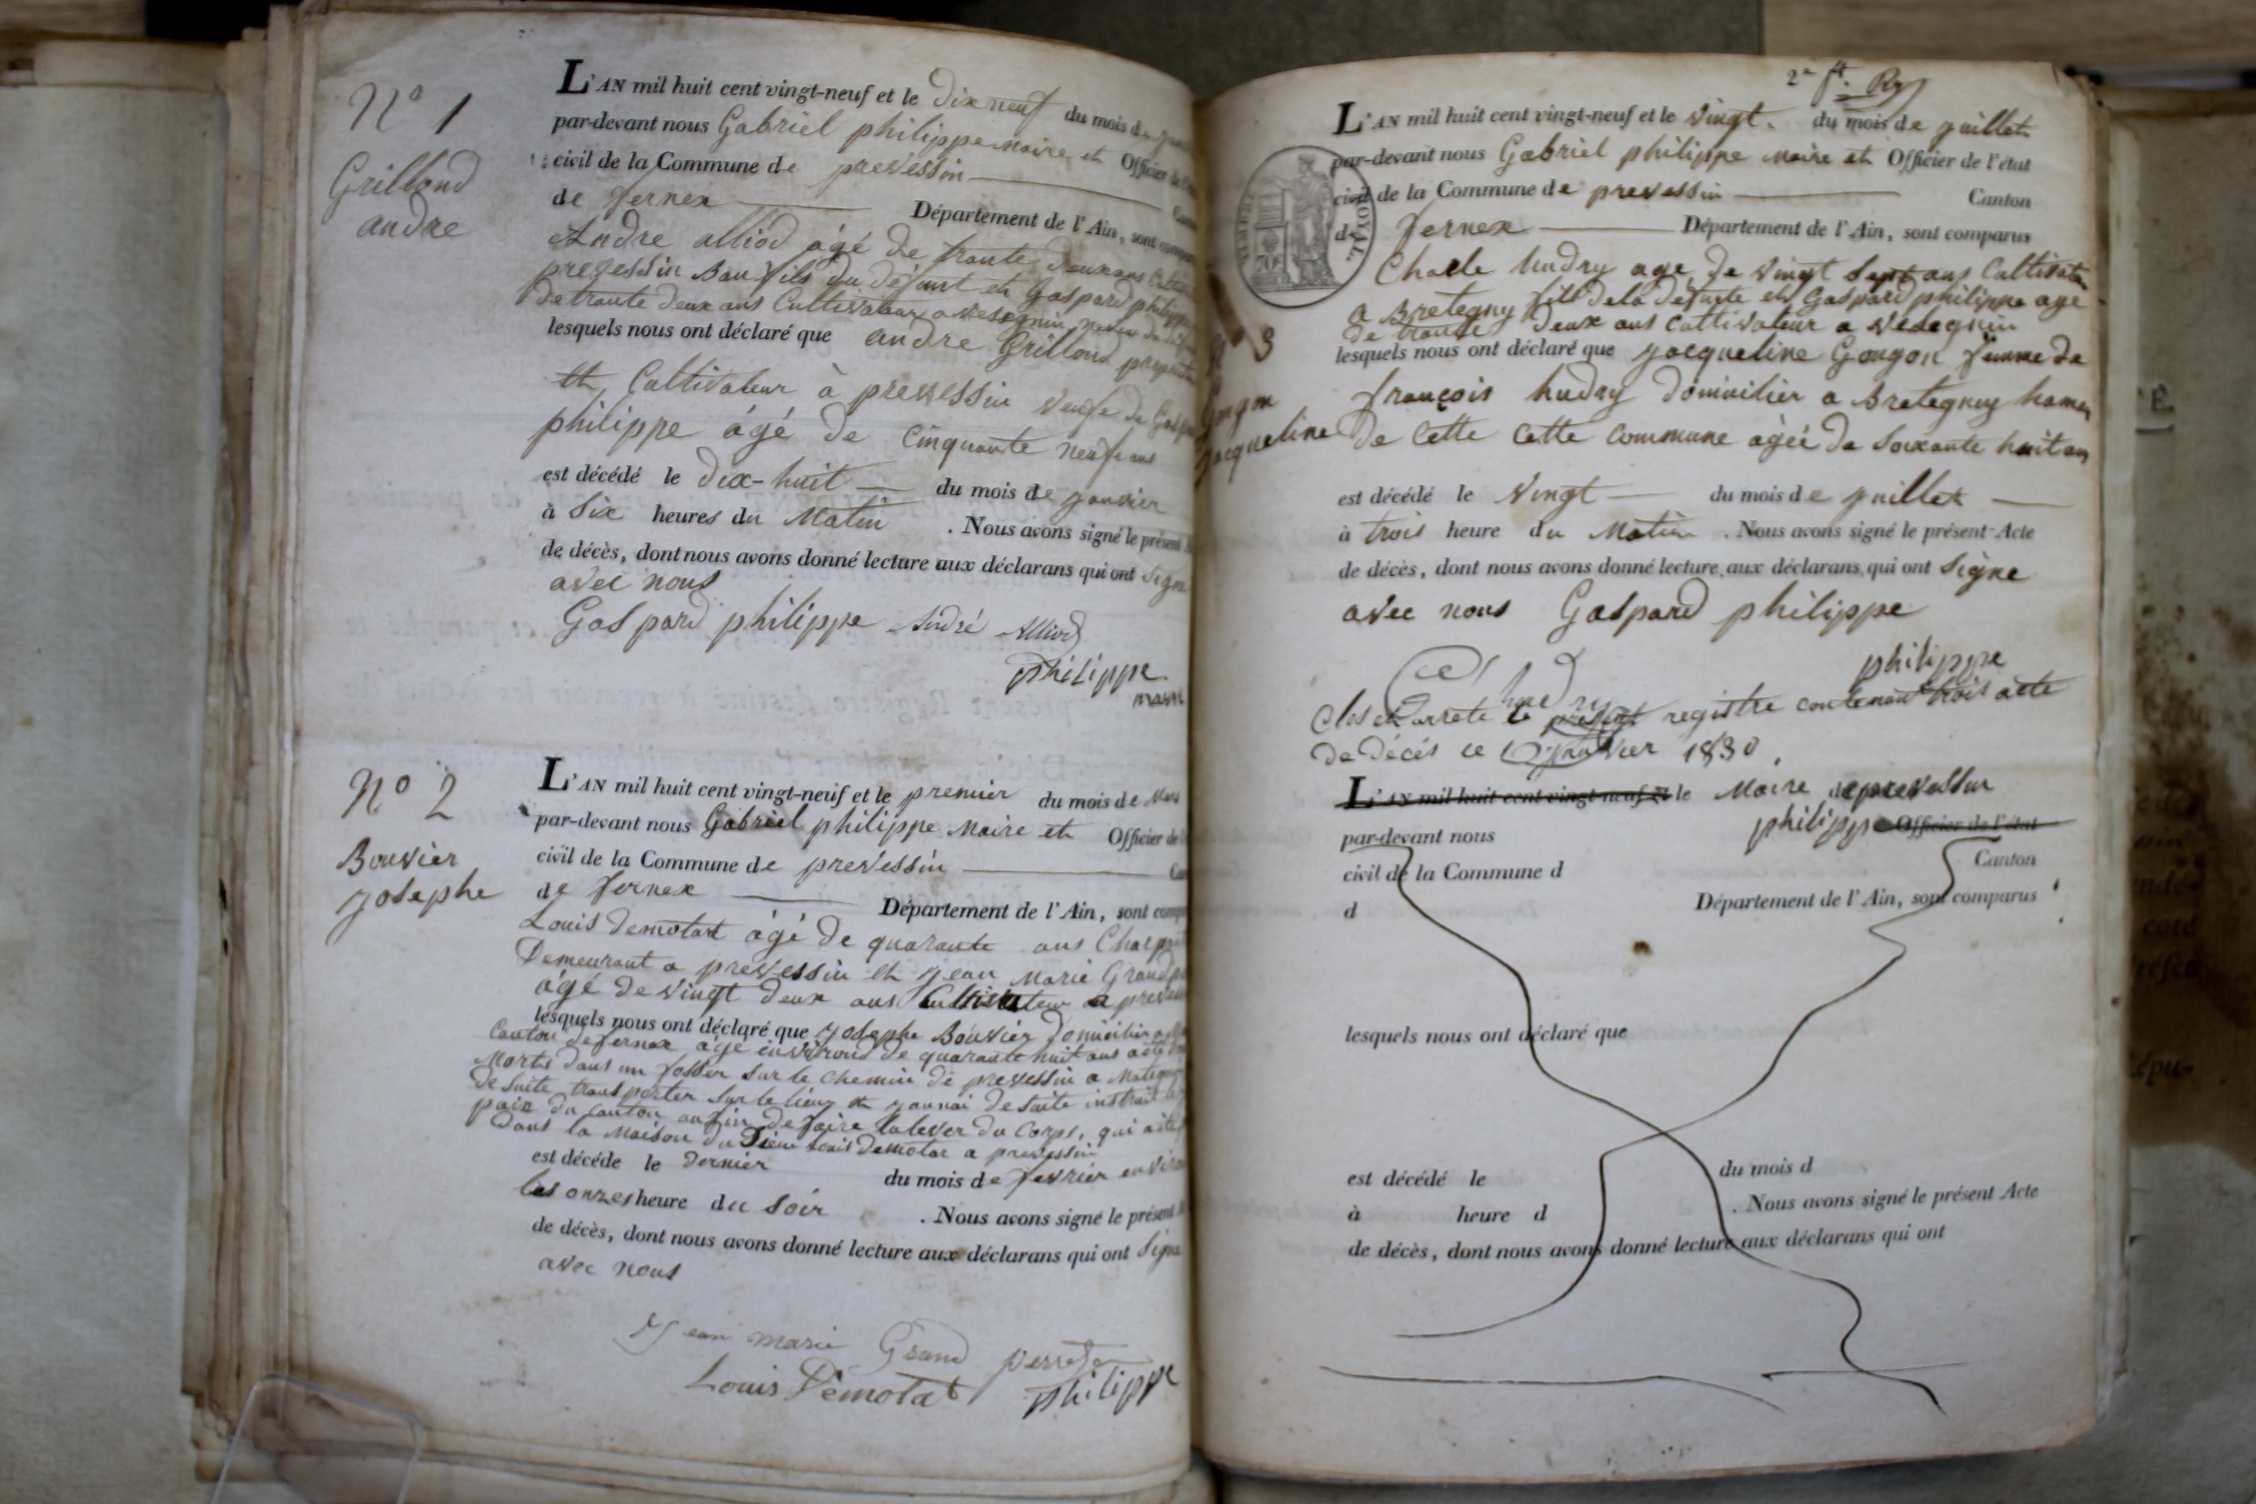 N° 1
Grillond
andre
L'AN mil huit cent vingt-neuf et le dix neuf du mois de
par-devant nous Gabriel philippe maire et Officier de
civil de la Commune de prevessin
de fernex Département de l'Ain, sont
Andre alliod âgé de trante deux ans
prevessin Baufils du défunt et gaspard philippe
de trante deux ans Cultivateur a vesegnin neveu du
lesquels nous ont déclaré que andre Grillond
et Cultivateur à prevessin veufe de
philippe âgé de cinquante neufe ans
est décédé le dix-huit du mois de janvier
à six heures du Matin . Nous avons signé le présent
de décès, dont nous avons donné lecture aux déclarans qui ont signe
avec nous
Gaspard philippe André Alliod
philippe
maire
N° 2
Bouvier
josephe
L'AN mil huit cent vingt-neuf et le premier du mois de Mars
par-devant nous Gabriel philippe Maire et Officier de
civil de la Commune de prevessin
de fernex Département de l'Ain, sont
Louis Demotat âgé de quarante ans
Demeurant a prevessin et jean Marie
âgé de vingt deux ans Cultivateur a
lesquels nous ont déclaré que josephe Bouvier Domicilier a
Canton de fernex âgé environs de quarante huit ans
Morts dans un fosser sur le chemin de prevessin a
de suite transporter sur le lieux et de suite instruit
paix du canton au fin de faire la lever du Corps, qui
dans la Maison du Sieur Louis Demotat a prevessin
est décéde le dernier du mois de fevrier
les onzes heure du soir . Nous avons signé le présent
de décès, dont nous avons donné lecture aux déclarans qui ont signe
avec nous
jean marie Grand perret
Louis Démotat philippe
2e ft.
L'AN mil huit cent vingt-neuf et le vingt. du mois de juillet
par-devant nous Gabriel philippe Maire et Officier de l'état
civil de la Commune de prevessin Canton
de fernex Département de l'Ain, sont comparus
Charle hudry age de vingt Sept ans Cultivateur
a Bretegny fils de la défunte et Gaspard philippe age
de trante deux ans cultivateur a vesegnin
3
Gongon
jacqueline
lesquels nous ont déclaré que jacqueline Gongon femme de
françois hudry Domicilier a Bretegny hameau
de cette cette commune âgéé de soixante huit ans
est décédé le vingt du mois de juillet
à trois heure du Matin . Nous avons signé le présent Acte
de décès, dont nous avons donné lecture aux déclarans qui ont signe
avec nous Gaspard philippe
philippe
hudry
Clos et arrete le présent registre contenant trois acte
de décés ce janvier 1830
L'AN mil huit cent vingt-neuf et le Maire de prevessin
par-devant nous philippe Officier de l'état
civil de la Commune d Canton
d Département de l'Ain, sont comparus
lesquels nous ont déclaré que
est décédé le du mois d
à heure d . Nous avons signé le présent Acte
de décès, dont nous avons donné lecture aux déclarans qui ont